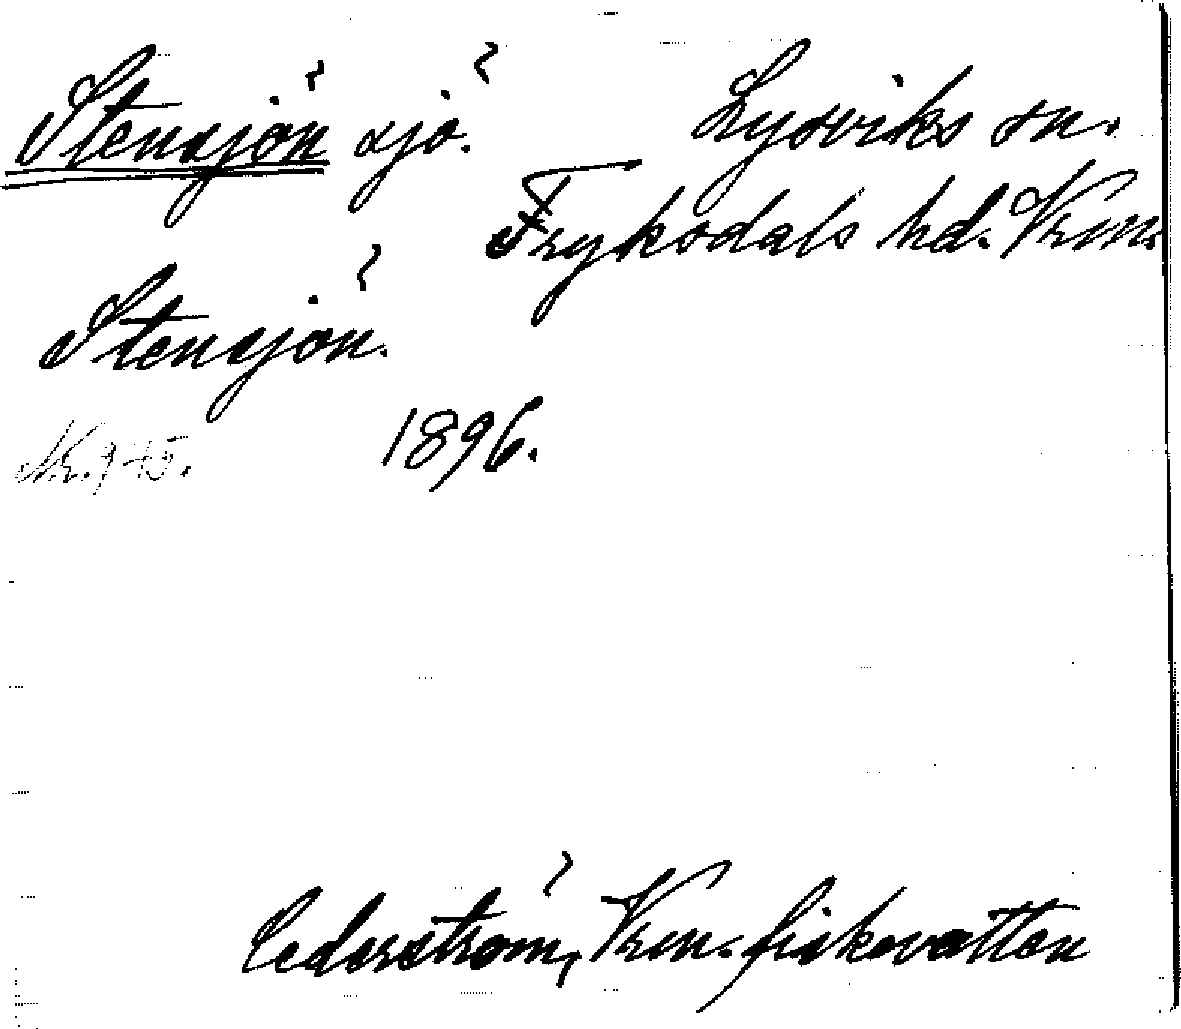 Stensjön sjö. Lysviks sn.
Fryksdals hd. Vrm.
Stensjön.
Nr. 945. 1896.
Cederström, Vrm. fiskevatten